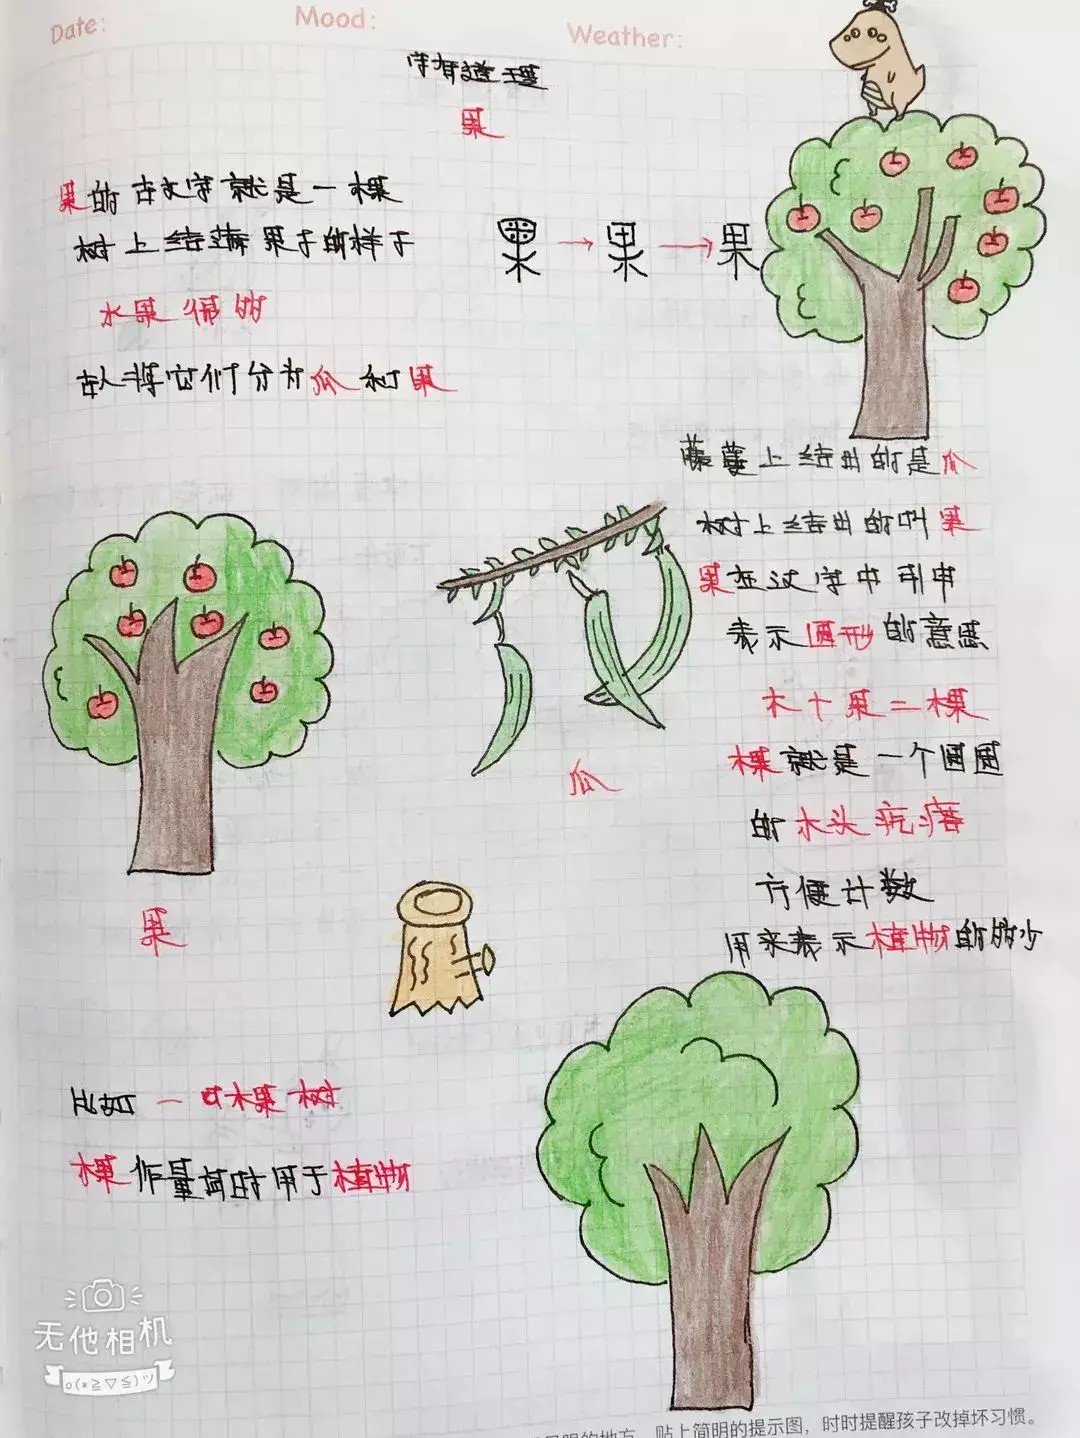 Date:
Mood:
Weather:
字有道理
果
果的古文字就是一棵
树上结满果子的样子
水果
古人将它们分为瓜和果
果→果→果
藤蔓上结出的是瓜
树上结出的叫果
果在汉字中引申
表示圆形的意思
木十果二棵
棵就是一个圆圆
的木头疙瘩
方便计数
用来表示植物的多少
瓜
果
比如一棵树
棵作量词时用于植物
无他相机
o(*≧▽≦)ツ
的地方，贴上简明的提示图，时时提醒孩子改掉坏习惯。